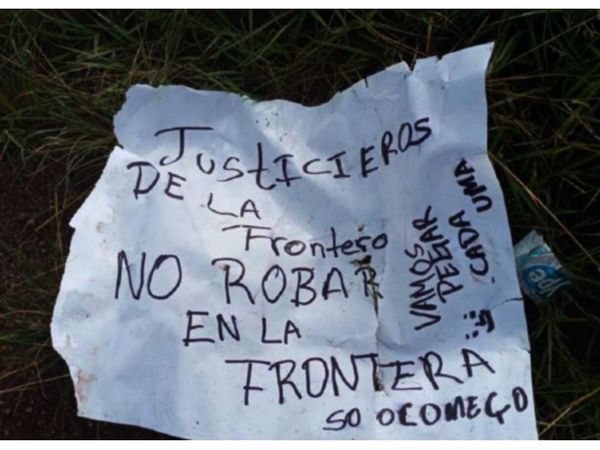 JUSTICIEROS
DE
LA
Frontero
NO ROBAR
EN LA
FRONTERA
SO OCOMEÇO
VAMOS
PEGAR
CADA UMA